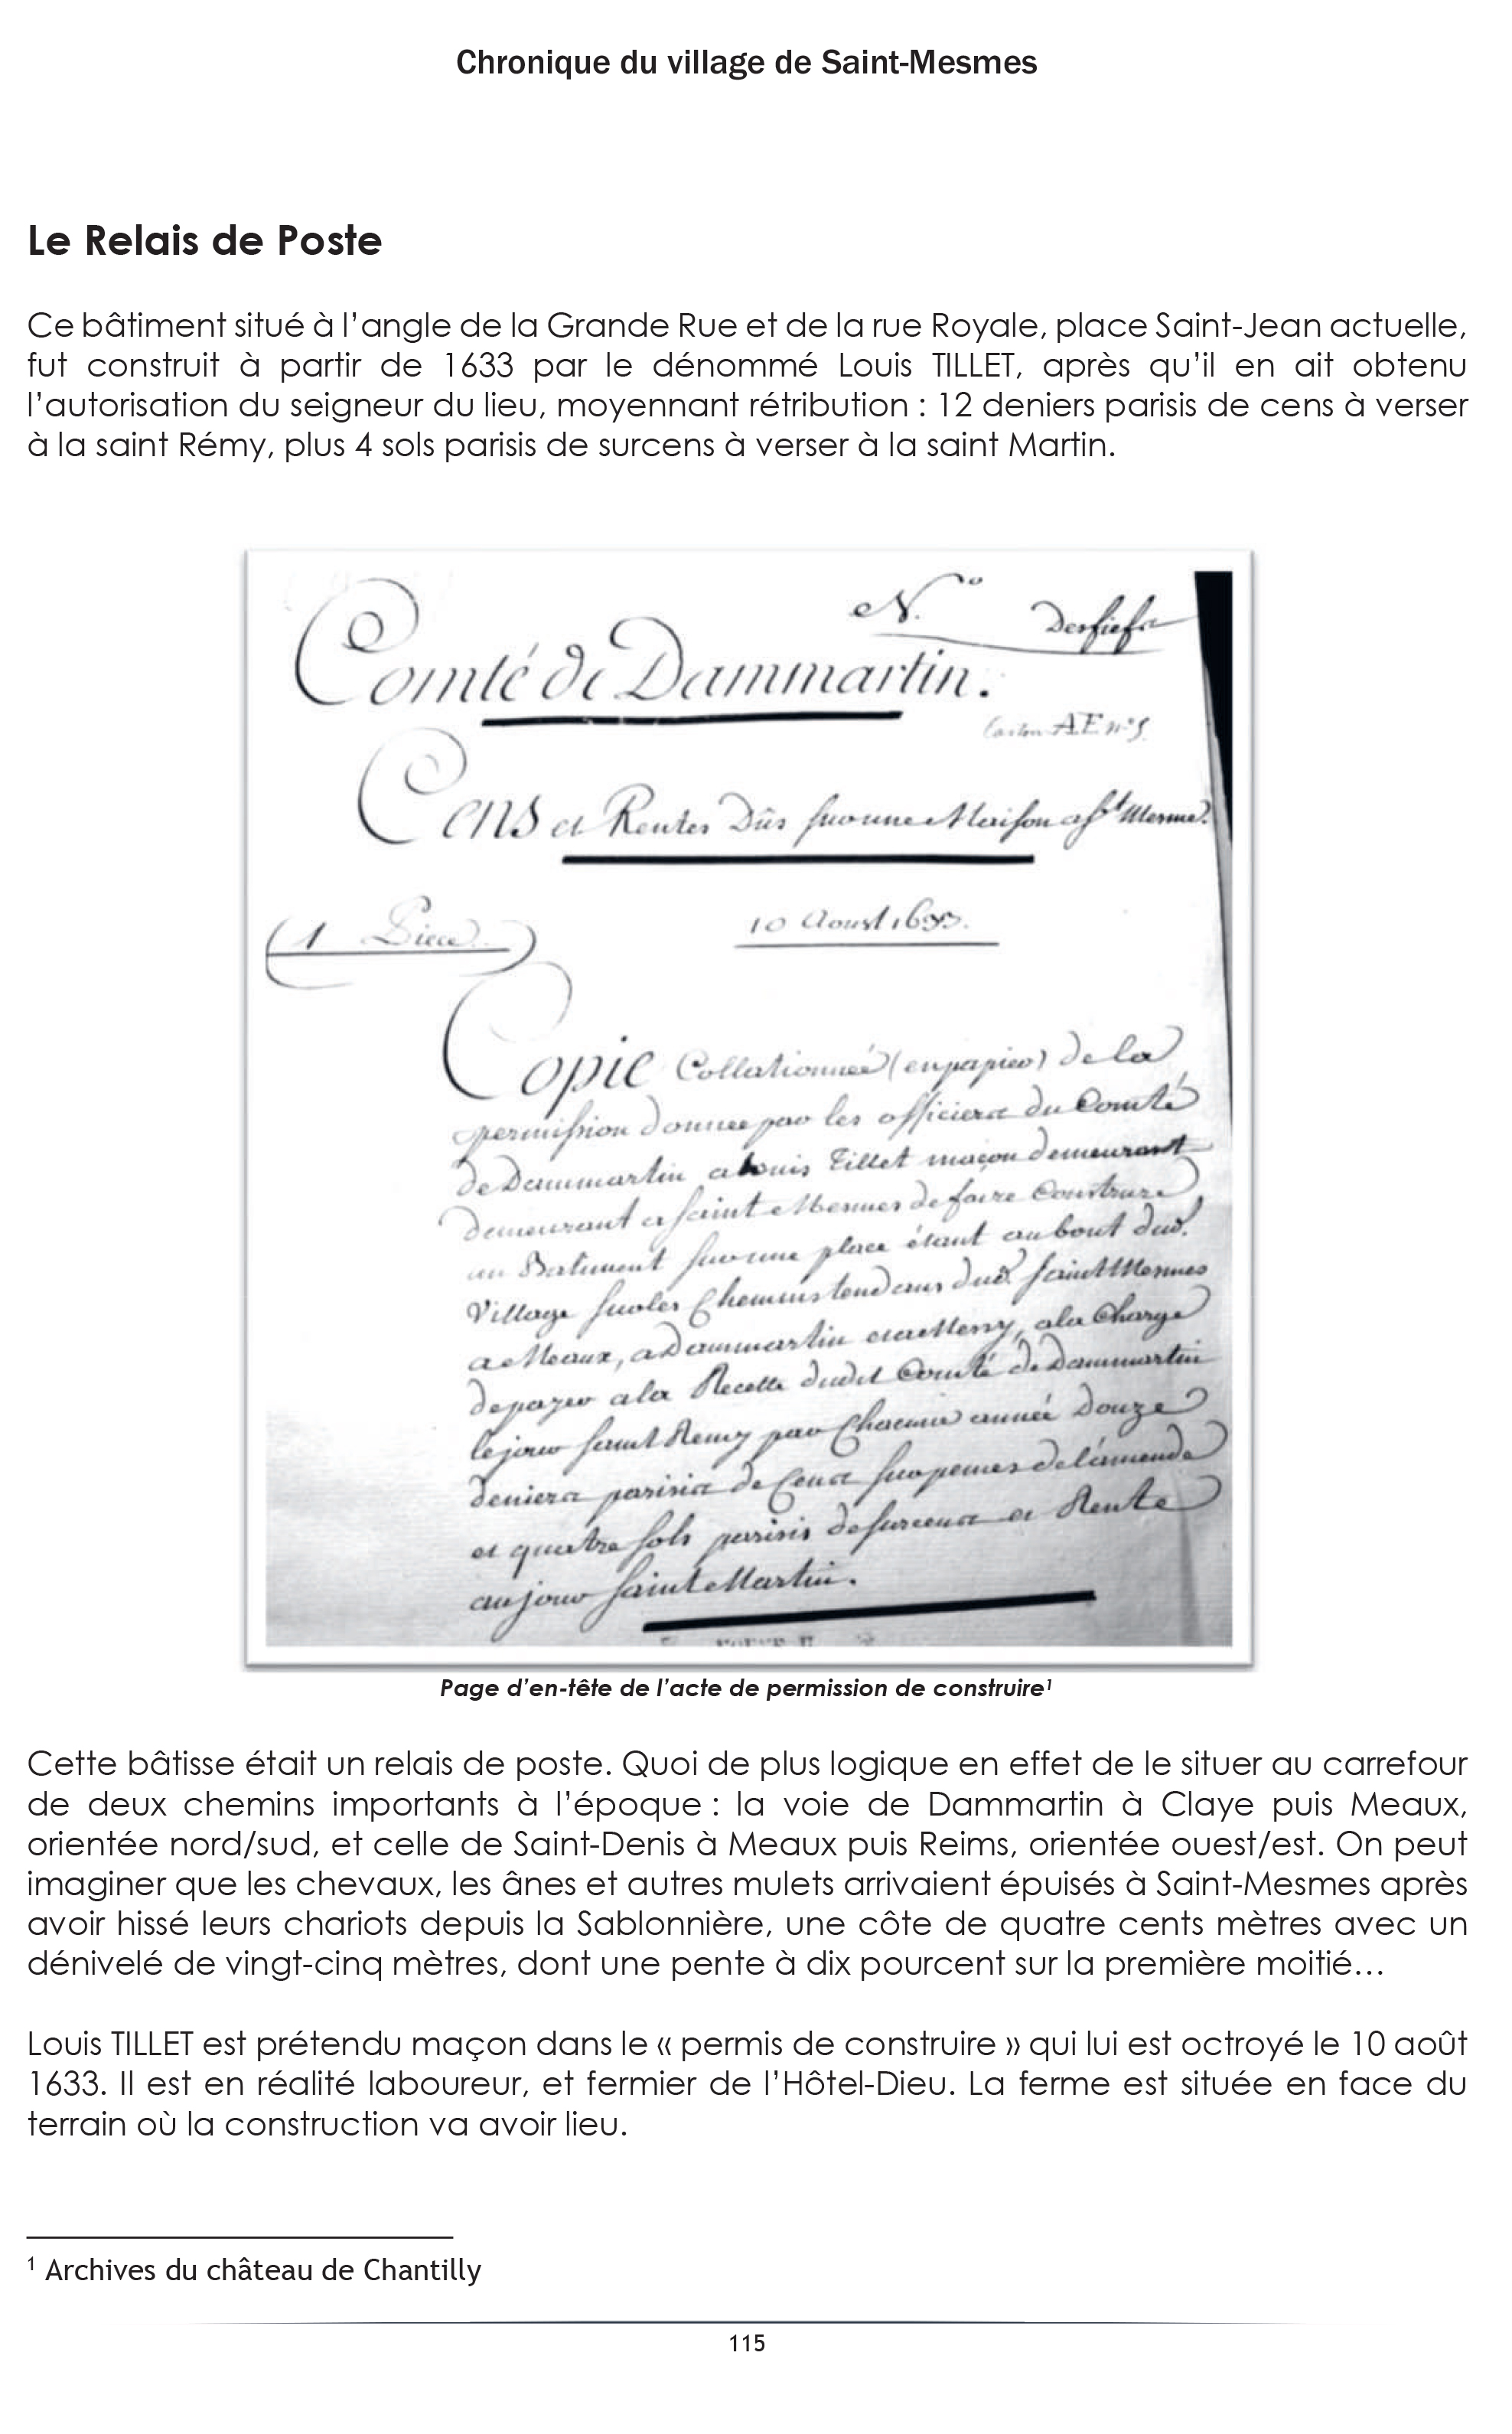 Chronique du village de Saint-Mesmes
Le Relais de Poste
Ce bâtiment situé à l'angle de la Grande Rue et de la rue Royale, place Saint-Jean actuelle,
fut construit à partir de 1633 par le dénommé Louis TILLET, après qu'il en ait obtenu
l'autorisation du seigneur du lieu, moyennant rétribution : 12 deniers parisis de cens à verser
à la saint Rémy, plus 4 sols parisis de surcens à verser à la saint Martin.
N.º Desfiefs
Comté de Dammartin.
Carton AE nº 5.
Cens et Rentes Dûs sur une Maison a St Mesme.
(1 Piece)
10 Aoust 1633.
Copie Collationnée (en papier) de la
permission donnee par les officiers du Comté
de Dammartin a Louis Tillet maçon demeurant
demeurant a saint Mesmes de faire Construire
un Batiment sur une place étant au bout dud.
Village sur les Chemins tendans dud. saint Mesmes
a Meaux, a Dammartin et a Messy, a la Charge
de payer a la Recette dudit Comté de Dammartin
le jour saint Remy par Chacune année Douze
deniers parisis de Cens sur peines de l'amende
et quatre sols parisis de surcens et Rente
au jour saint Martin.
Page d'en-tête de l'acte de permission de construire¹
Cette bâtisse était un relais de poste. Quoi de plus logique en effet de le situer au carrefour
de deux chemins importants à l'époque : la voie de Dammartin à Claye puis Meaux,
orientée nord/sud, et celle de Saint-Denis à Meaux puis Reims, orientée ouest/est. On peut
imaginer que les chevaux, les ânes et autres mulets arrivaient épuisés à Saint-Mesmes après
avoir hissé leurs chariots depuis la Sablonnière, une côte de quatre cents mètres avec un
dénivelé de vingt-cinq mètres, dont une pente à dix pourcent sur la première moitié…
Louis TILLET est prétendu maçon dans le « permis de construire » qui lui est octroyé le 10 août
1633. Il est en réalité laboureur, et fermier de l'Hôtel-Dieu. La ferme est située en face du
terrain où la construction va avoir lieu.
¹ Archives du château de Chantilly
115